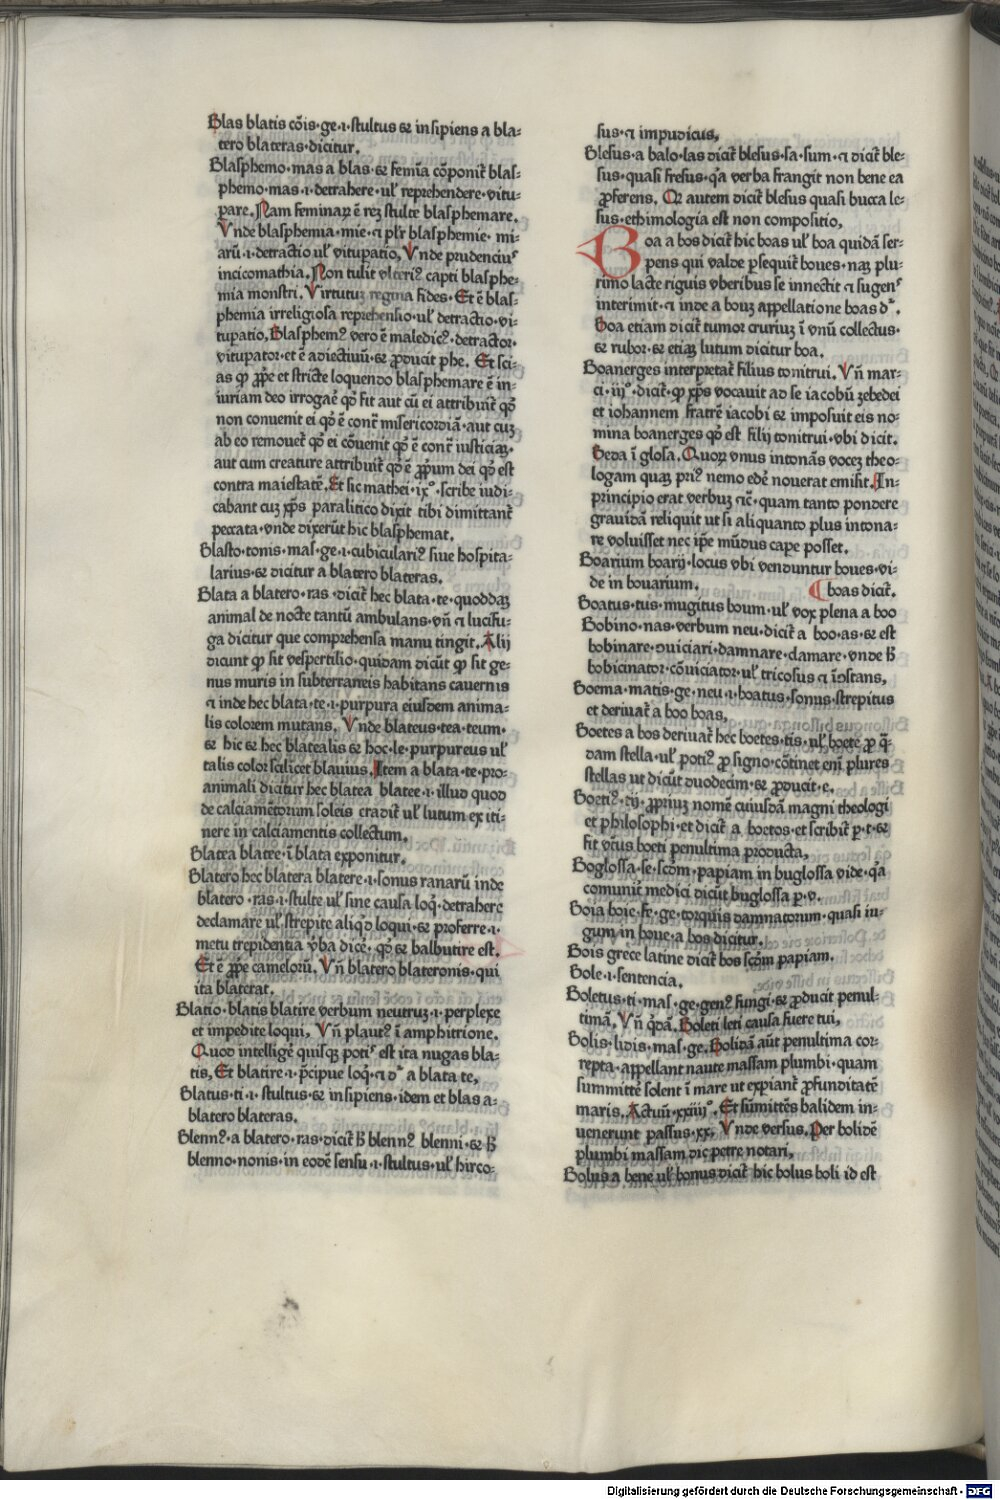 Blas blatis cōis·ge·ı·stultus ꝫ insipiens a bla⸗
tero blateras·dicitur.
Blasphemo·mas a blas·ꝫ femīa cōponit̄ blas⸗
phemo·mas·ı·detrahere·ul᷒ reprehendere·vitu⸗
pare. Nam feminaꝝ ē reꝫ stulte blasphemare.
Vnde blasphemia·mie·ꝛ pl̄r blasphemie·mi⸗
arū·ı·detractio ul᷒ vitupatio, Vnde prudencius
incicomathia. Non tulit vlteri᷒ capti blasphe⸗
mia monstri. Virtutuꝫ regina fides. Et ē blas⸗
phemia irreligiosa reprehensio·ul᷒ detractio·vi⸗
tupatio, Blasphem᷒ vero ē maledic᷒·detractor·
vitupator·et ē adiectiuū·ꝫ ꝓducit phe. Et sci⸗
as ꝙ ꝓpe et stricte loquendo blasphemare ē in⸗
iuriam deo irrogaē qđ fit aut cū ei attribuit̄ qđ
non conuenit ei qđ ē cont̄ misericordiā·aut cuꝫ
ab eo remouet̄ qđ ei cōuenit qđ ē cont̄ iusticiaꝫ·
aut cum creature attribuit̄ qđ ē ꝓpum dei qđ est
contra maiestatē. Et sic mathei·ix°·scribe iudi⸗
cabant cuꝫ xp̄s paralitico dixit tibi dimittant̄
peccata·vnde dixerūt hic blasphemat.
Blasto·tonis·mas·ge·ı·cubiculari᷒ siue hospita⸗
larius·ꝫ dicitur a blatero blateras.
Blata a blatero·ras·dicit̄ hec blata·te·quoddaꝫ
animal de nocte tantū ambulans·vn̄ ꝛ lucifu⸗
ga dicitur que comprehensa manu tingit. Alij
dicunt ꝙ sit vespertilio·quidam dicūt ꝙ sit ge⸗
nus muris in subterraneis habitans cauernis
ꝛ inde hec blata·te·ı·purpura eiusdem anima⸗
lis colorem mutans. Vnde blateus·tea·teum·
ꝫ hic ꝫ hec blatealis ꝫ hoc·le·purpureus ul᷒
talis color scilicet blauius. Item a blata·te·pro⸗
animali dicitur hec blatea blatee·ı·illud quod
de calciamētorum soleis cradit̄ ul᷒ lutum ex iti⸗
nere in calciamentis collectum.
Blatea blatee·ī blata exponitur.
Blatero hec blatera blatere·ı·sonus ranarū inde
blatero·ras·ı·stulte ul᷒ sine causa loq̄·detrahere
declamare ul᷒ strepite aliqd̄ loqui·ꝫ proferre·ı·
metu trepidentia v̄ba dicē·qđ ꝫ balbutire est.
Et ē ꝓpe camelorū. Vn̄ blatero blateronis·qui
ita blaterat.
Blatio·blatis blatire verbum neutruꝫ·ı·perplexe
et impedite loqui, Vn̄ plaut᷒ ī amphitrione.
Quod intelligē quisqꝫ poti᷒ est ita nugas bla⸗
tis, Et blatire·ı·p̄cipue loq̄·ꝛ d᷒ a blata te,
Blatus·ti·ı·stultus·ꝫ insipiens·idem et blas a⸗
blatero blateras.
Blenn᷒·a blatero·ras·dicit̄ ħ blenn᷒ blenni·ꝫ ħ
blenno·nonis·in eodē sensu·ı·stultus·ul᷒ hirco⸗
sus·ꝛ impudicus,
Blesus·a balo·las dicit̄ blesus·sa·sum·ꝛ dicit̄ ble⸗
sus·quasi fresus·qꝛ verba frangit non bene ea
ꝓferens. Qꝛ autem dicit̄ blesus quasi bucca le⸗
sus·ethimologia est non compositio,
Boa a bos dicit̄ hic boas ul᷒ boa quidā ser⸗
pens qui valde ꝑsequit̄ boues·naꝫ plu⸗
rimo lacte riguis vberibus se innectit ꝛ sugens
interimit·ꝛ inde a bouꝫ appellatione boas d᷒.
Boa etiam dicit̄ tumor cruriuꝫ ī vnū collectus·
ꝫ rubor·ꝫ etiaꝫ lutum dicitur boa.
Boanerges interpretat̄ filius tonitrui. Vn̄ mar⸗
ci·iij°·dicit̄·ꝙ xp̄s vocauit ad se iacobū ȝebedei
et iohannem fratrē iacobi ꝫ imposuit eis no⸗
mina boanerges qđ est filij tonitrui·vbi dicit.
Beda ī glosa. Quoꝝ vnus intonās voceꝫ theo⸗
logam quaꝫ pri᷒ nemo edē nouerat emisit. In⸗
principio erat verbuꝫ ꝛc̄·quam tanto pondere
grauidā reliquit ut si aliquanto plus intona⸗
re voluisset nec ip̄e mūdus cape posset.
Boarium boarij·locus vbi venduntur boues·vi⸗
de in bouarium.
¶ boas dicit̄.
Boatus·tus·mugitus boum·ul᷒ vox plena a boo
Bobino·nas·verbum neu·dicit̄ a boo·as·ꝫ est
bobinare·ꝯuiciari·damnare·clamare·vnde ħ
bobicinator·cōuiciator·ul᷒ tricosus ꝛ īꝯstans,
Boema·matis·ge·neu·ı·boatus·sonus·strepitus
et deriuat̄ a boo boas,
Boetes a bos deriuat̄ hec boetes·tis·ul᷒ boete ꝓ q̄⸗
dam stella·ul᷒ poti᷒ ꝓ signo·cōtinet enī plures
stellas ut dicūt duodecim·ꝫ ꝓducit·e.
Boeti᷒·tij·ꝓpriuꝫ nomē cuiusdā magni theologi
et philosophi·et dicit̄ a boetos·et scribit̄ ꝑ·t·ꝫ
fit vt̄ius boeti penultima producta,
Boglossa·se·scd̄m·papiam in buglossa vide·qꝛ
comunit̄ medici dicūt buglossa ꝑ·v.
Boia boie·fe·ge·torquis damnatorum·quasi iu⸗
gum in boue·a bos dicitur.
Bois grece latine dicit̄ bos scd̄m papiam.
Bole·ı·sentencia.
Boletus·ti·mas·ge·gen᷒ fungi·ꝫ ꝓducit penul⸗
timā. Vn̄ qdā. Boleti leti causa fuere tui,
Bolis·lidis·mas·ge. Bolidā aūt penultima cor⸗
repta·appellant naute massam plumbi·quam
summittē solent ī mare ut expiant̄ ꝓfunditatē
maris. Actuū·xxiij°. Et sūmittēs balidem in⸗
uenerunt passus·xx. Vnde versus. Per bolidē
plumbi massam dic petre notari,
Bolus a bene ul᷒ bonus dicit̄ hic bolus boli id est
Digitalisierung gefördert durch die Deutsche Forschungsgemeinschaft · DFG